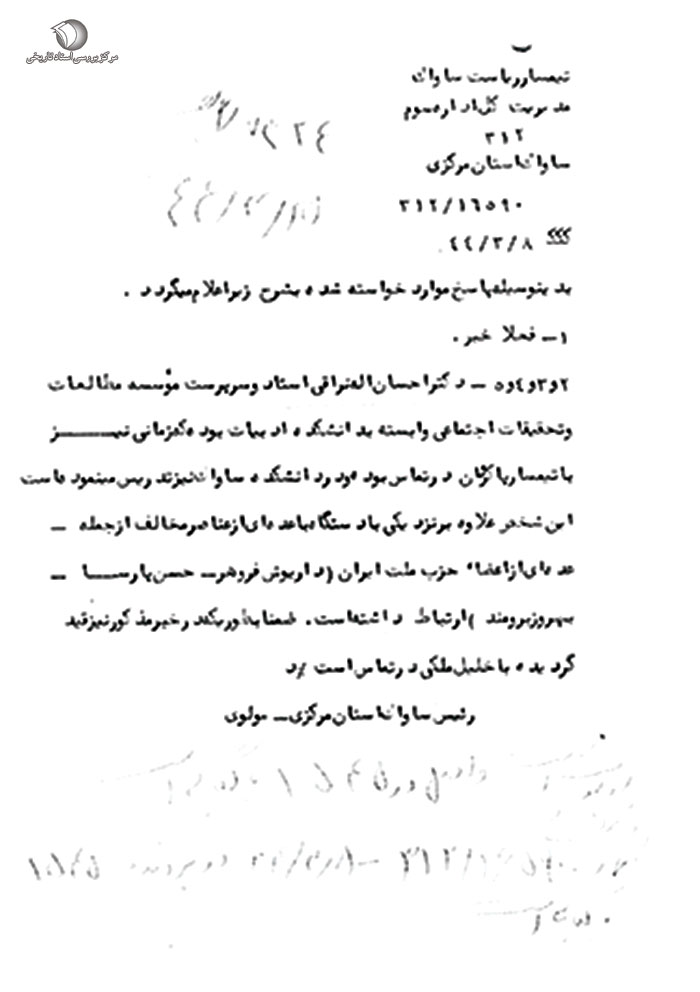 مرکز بررسی اسناد تاریخی
تیمسار ریاست ساواک
مدیریت کل اداره سوم
۳۱۲
ساواک استان مرکزی
۳۱۲/۱۶۵۹۰
۴۴/۳/۸
بدینوسیله پاسخ موارد خواسته شده بشرح زیر اعلام میگردد .
۱ــ فعلا خبر .
۲و۳و۴و۵ ــ دکتر احسان اله نراقی استاد و سرپرست مؤسسه مطالعات
و تحقیقات اجتماعی وابسته بدانشکده ادبیات بوده که زمانی نیــــز
با تیمسار پاکروان در تماس بوده و در دانشکده ساواک نیز تدریس مینموده است
این شخص علاوه بر نزدیکی با دستگاه با عده ای از عناصر مخالف از جمله ــ
عده ای از اعضاء حزب ملت ایران (داریوش فروهر ــ حسن پارسا ــ
بهروز برومند ) ارتباط داشته است . ضمنا بطوریکه در خبر مذکور نیز قید
گردیده با خلیل ملکی در تماس است /د
رئیس ساواک استان مرکزی ــ مولوی